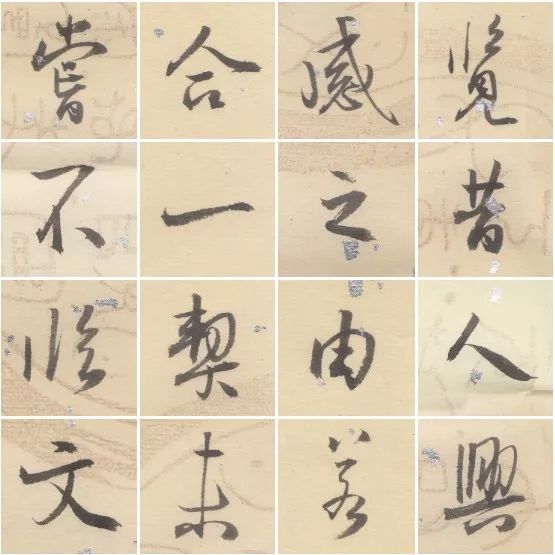 覽昔人興
感之由若
合一契未
嘗不臨文